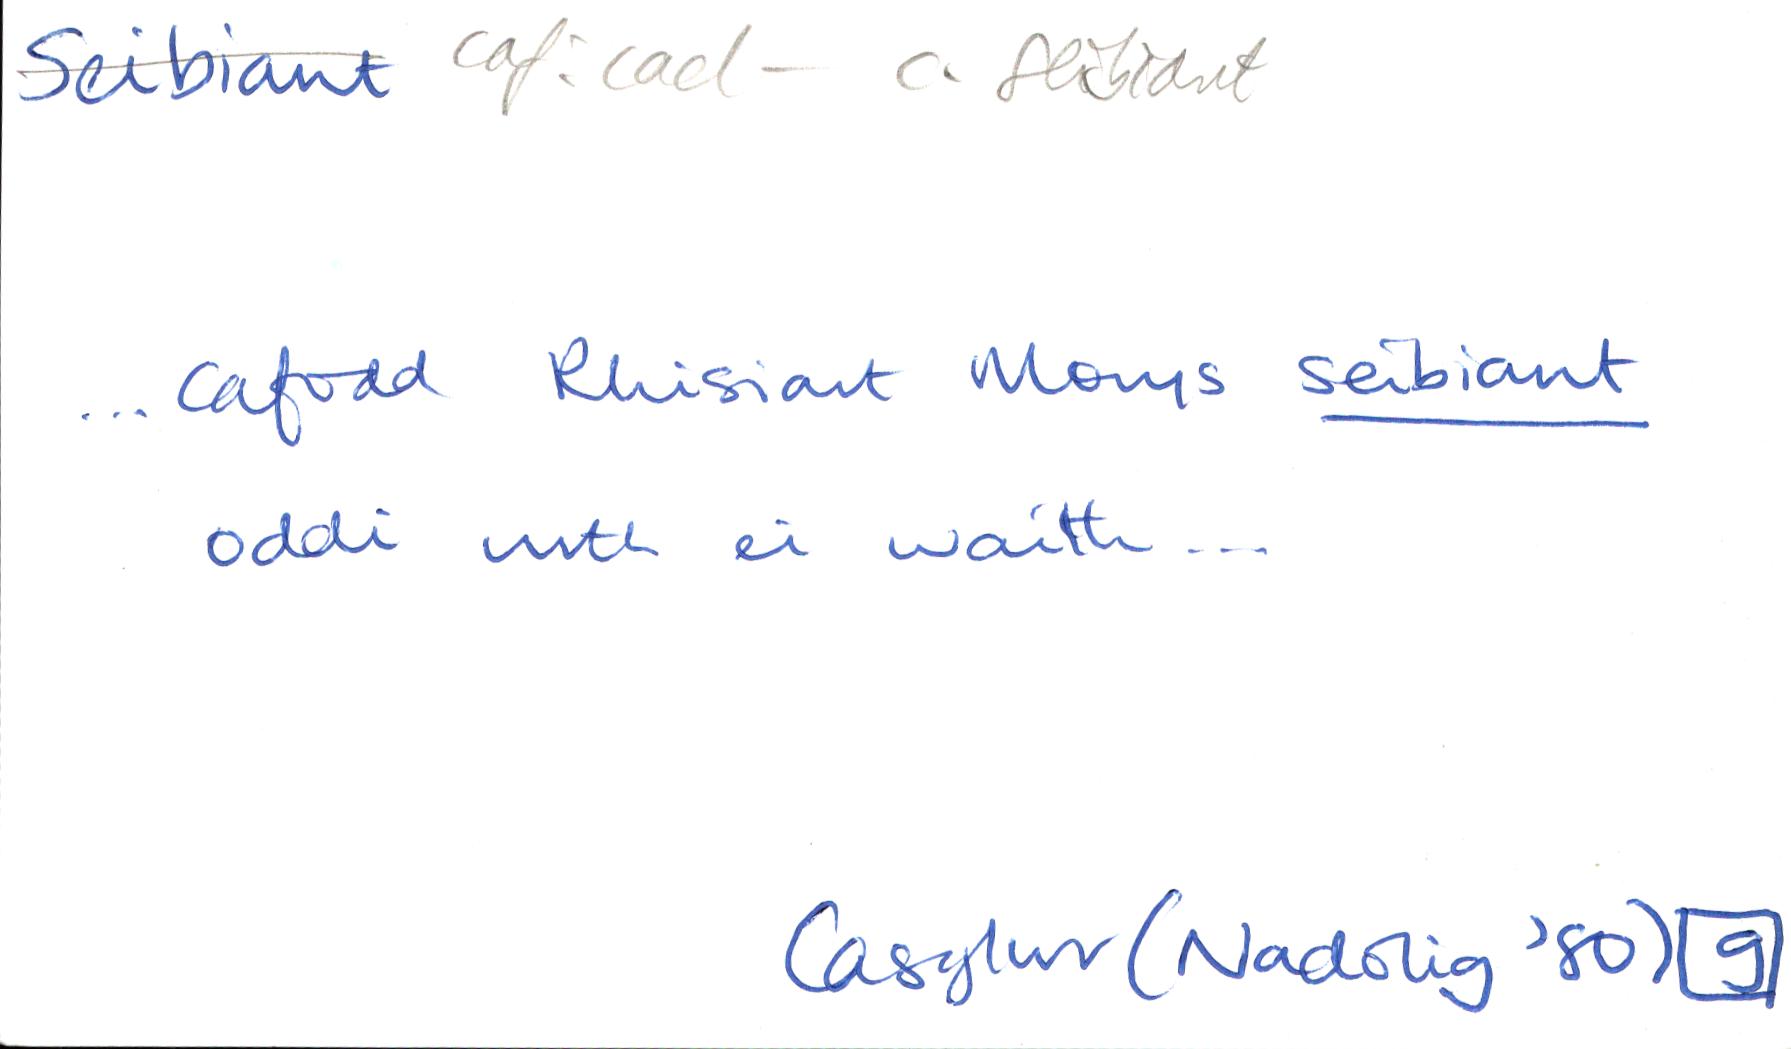 Seibiant caf: cael — a seibiant
... cafodd Rhisiart Morys seibiant
oddi wrth ei waith ...
Casglwr (Nadolig '80) 9